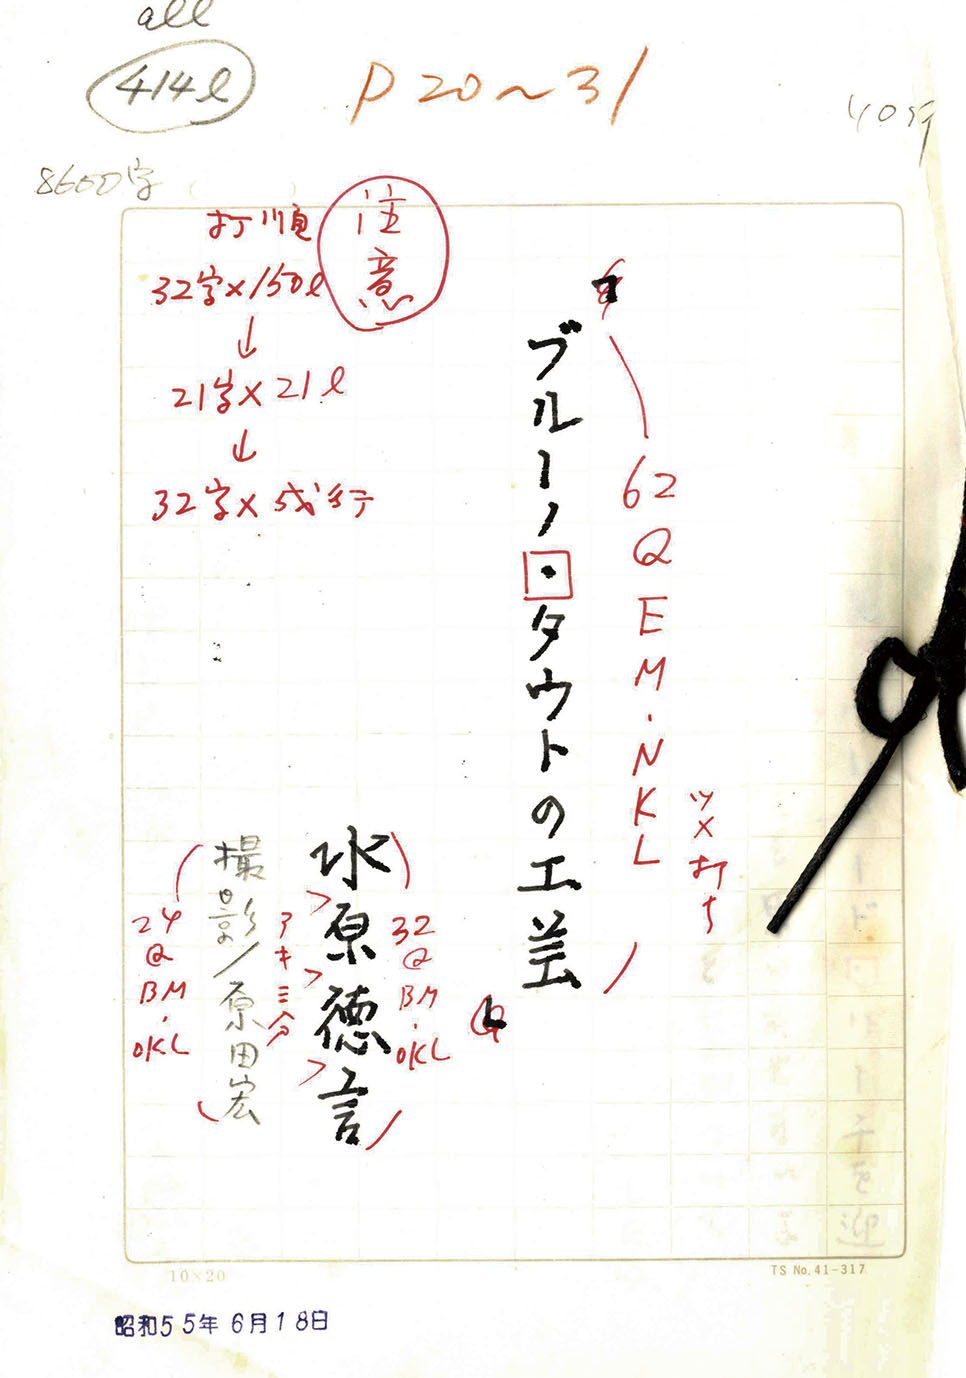 all
414l
P20〜31
40行
8600字
注意
打順
32字×150l
↓
21字×21l
↓
32字×成行
「ブルーノ・タウトの工芸」
62QEM・NKL
ツメ打ち
水原徳言
32QBM・OKL
アキ三分
撮影/原田宏
24QBM・OKL
10×20
TS No. 41-317
昭和55年6月18日